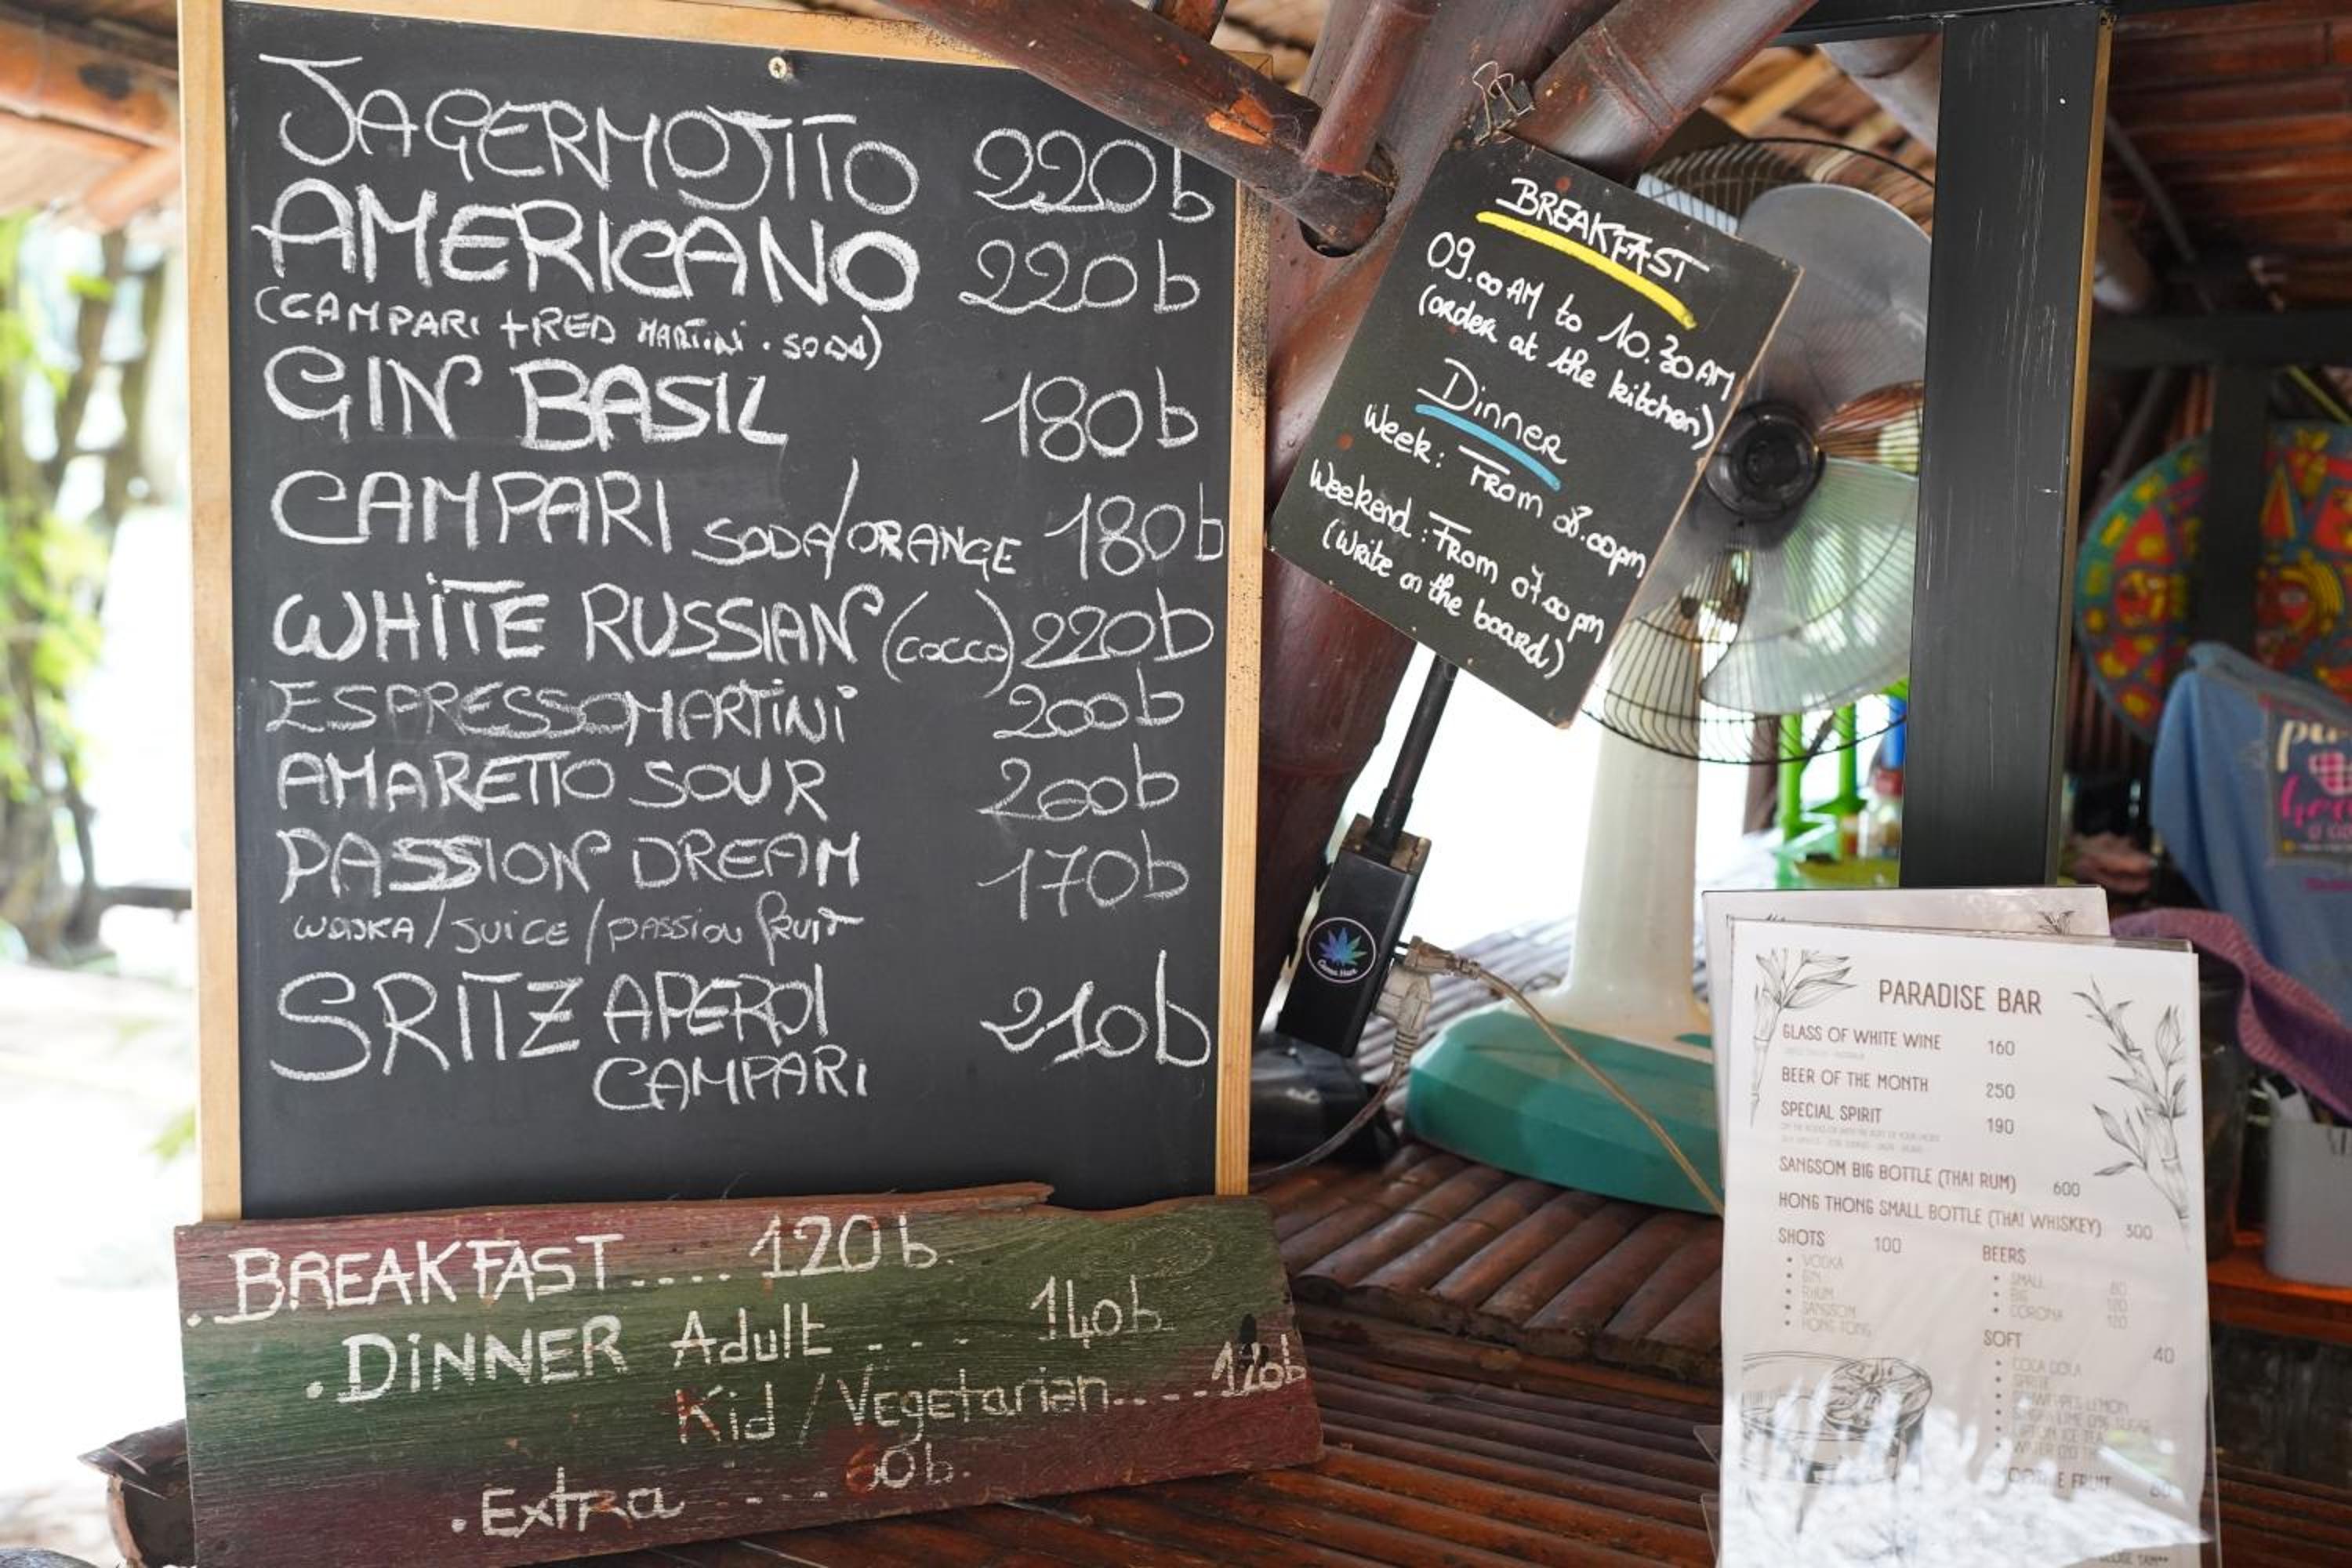 JAGERMOJITO 220b
AMERICANO 220b
(CAMPARI + RED MARTINI . SODA)
GIN BASIL 180b
CAMPARI SODA/ORANGE 180b
WHITE RUSSIAN (COCCO) 220b
ESPRESSOMARTINI 200b
AMARETTO SOUR 200b
PASSION DREAM 170b
WODKA / JUICE / PASSION FRUIT
SRITZ APEROL 210b
CAMPARI
. BREAKFAST.... 120b.
. DINNER Adult .... 140b
Kid / Vegetarian....
. Extra .... 60b.
BREAKFAST
09.00 AM to 10.30 AM
(order at the kitchen)
Dinner
Week: From 08.00pm
Weekend: From 07.00pm
(Write on the board)
PARADISE BAR
GLASS OF WHITE WINE 160
BEER OF THE MONTH 250
SPECIAL SPIRIT 190
SANGSOM BIG BOTTLE (THAI RUM) 600
HONG THONG SMALL BOTTLE (THAI WHISKEY) 300
SHOTS 100
• VODKA
• GIN
• RHUM
• SANGSOM
• HONG TONG
BEERS
• SMALL 80
• BIG 120
• CORONA 120
SOFT 40
• COCA COLA
• SPRITE